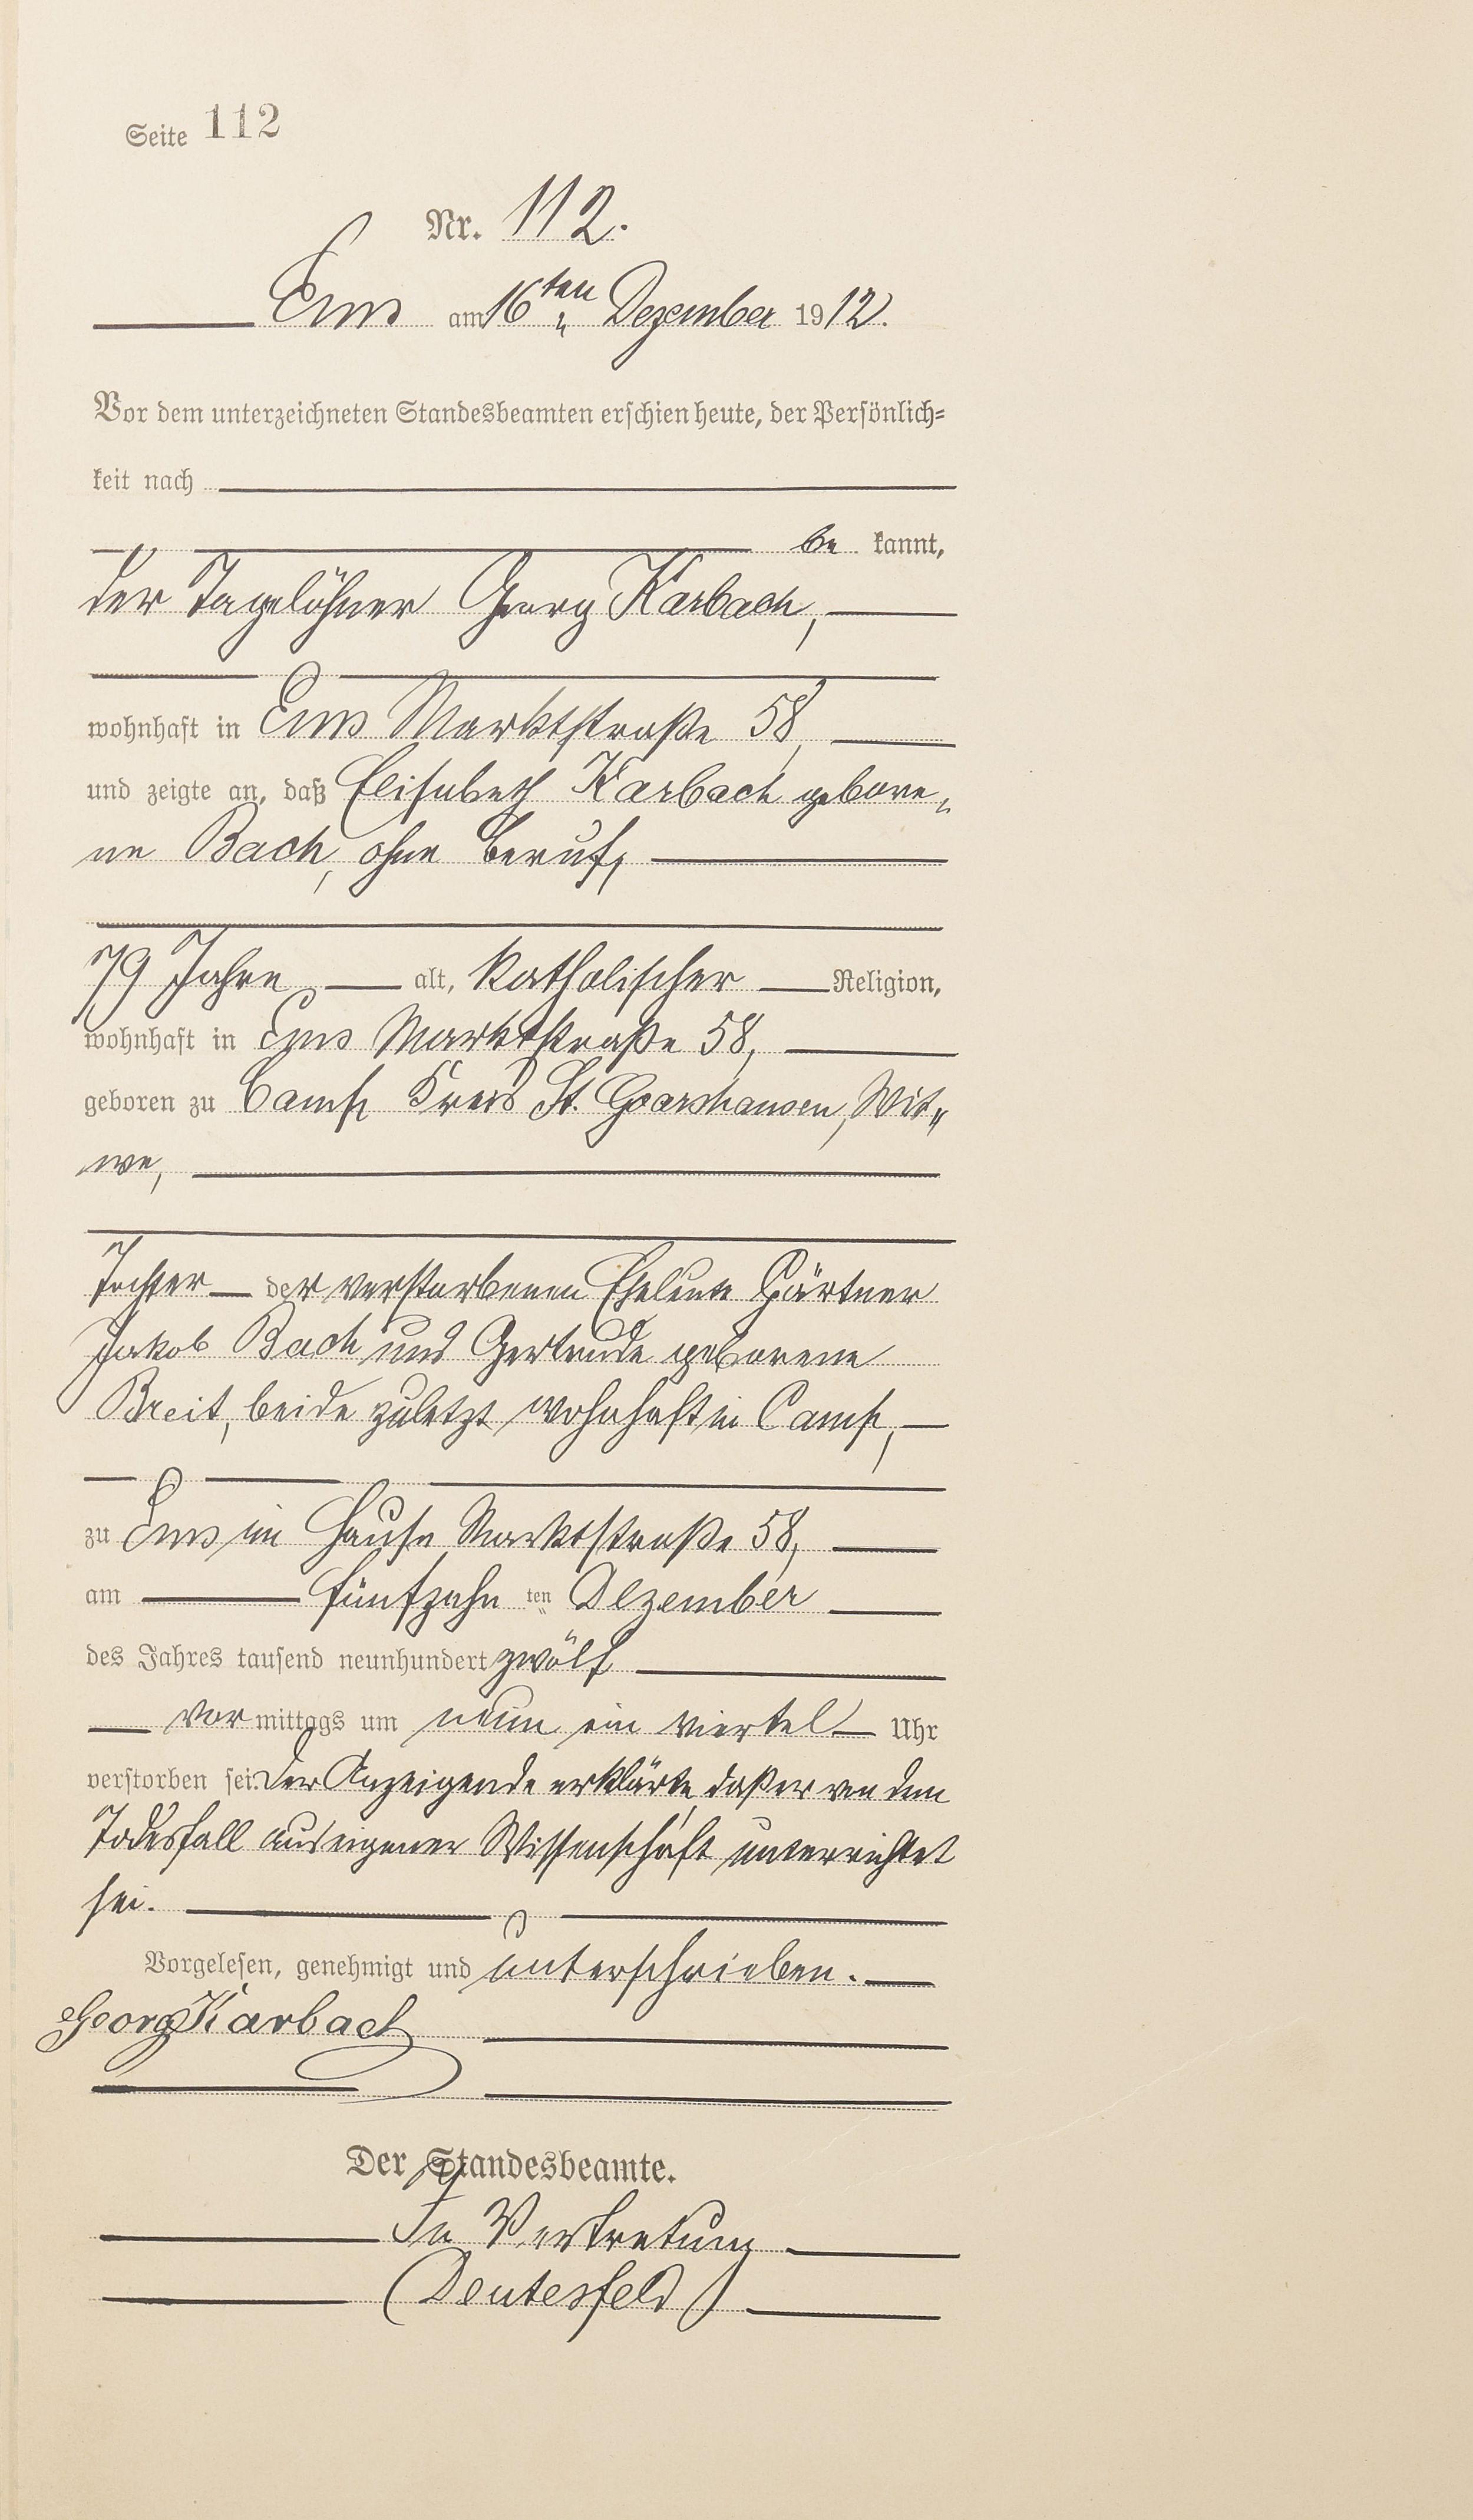 Seite 112
Nr. 112.
Ems am 16ten Dezember 1912.
Vor dem unterzeichneten Standesbeamten erschien heute, der Persönlich=
keit nach
be kannt,
der Tagelöhner Georg Karbach,
wohnhaft in Ems Marktstraße 58,
und zeigte an, daß Elisabeth Karbach gebore„
ne Bach, ohne Beruf,
79 Jahre alt, katholischer Religion,
wohnhaft in Ems Marktstraße 58,
geboren zu Camp Kreis St. Goarshausen, Wit„
we,
Tochter der verstorbenen Eheleute Gärtner
Jakob Bach und Gertrude geborene
Breit, beide zuletzt wohnhaft in Camp,
zu Ems im Hause Marktstraße 58,
am fünfzehn ten Dezember
des Jahres tausend neunhundert zwölf
vor mittags um neun ein viertel Uhr
verstorben sei. Der Anzeigende erklärte, daß er von dem
Todesfall aus eigener Wissenschaft unterrichtet
sei.
Vorgelesen, genehmigt und unterschrieben.
Georg Karbach
Der Standesbeamte.
In Vertretung
(Deutesfeld)